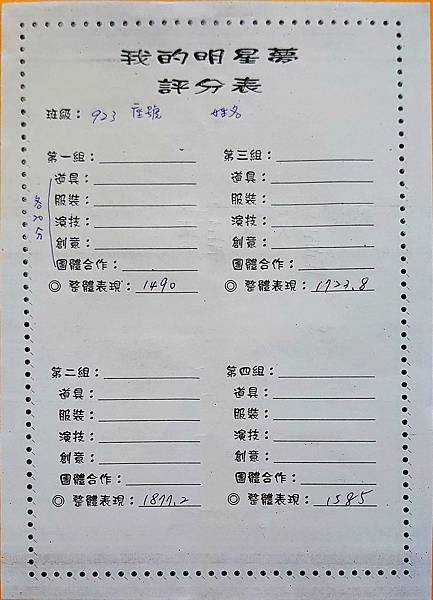 我的明星夢
評分表
班級：923 座號 姓名
第一組：
道具：
服裝：
演技：
創意：
團體合作：
◎ 整體表現：1490
各20分
第三組：
道具：
服裝：
演技：
創意：
團體合作：
◎ 整體表現：1723.8
第二組：
道具：
服裝：
演技：
創意：
團體合作：
◎ 整體表現：1877.2
第四組：
道具：
服裝：
演技：
創意：
團體合作：
◎ 整體表現：1585